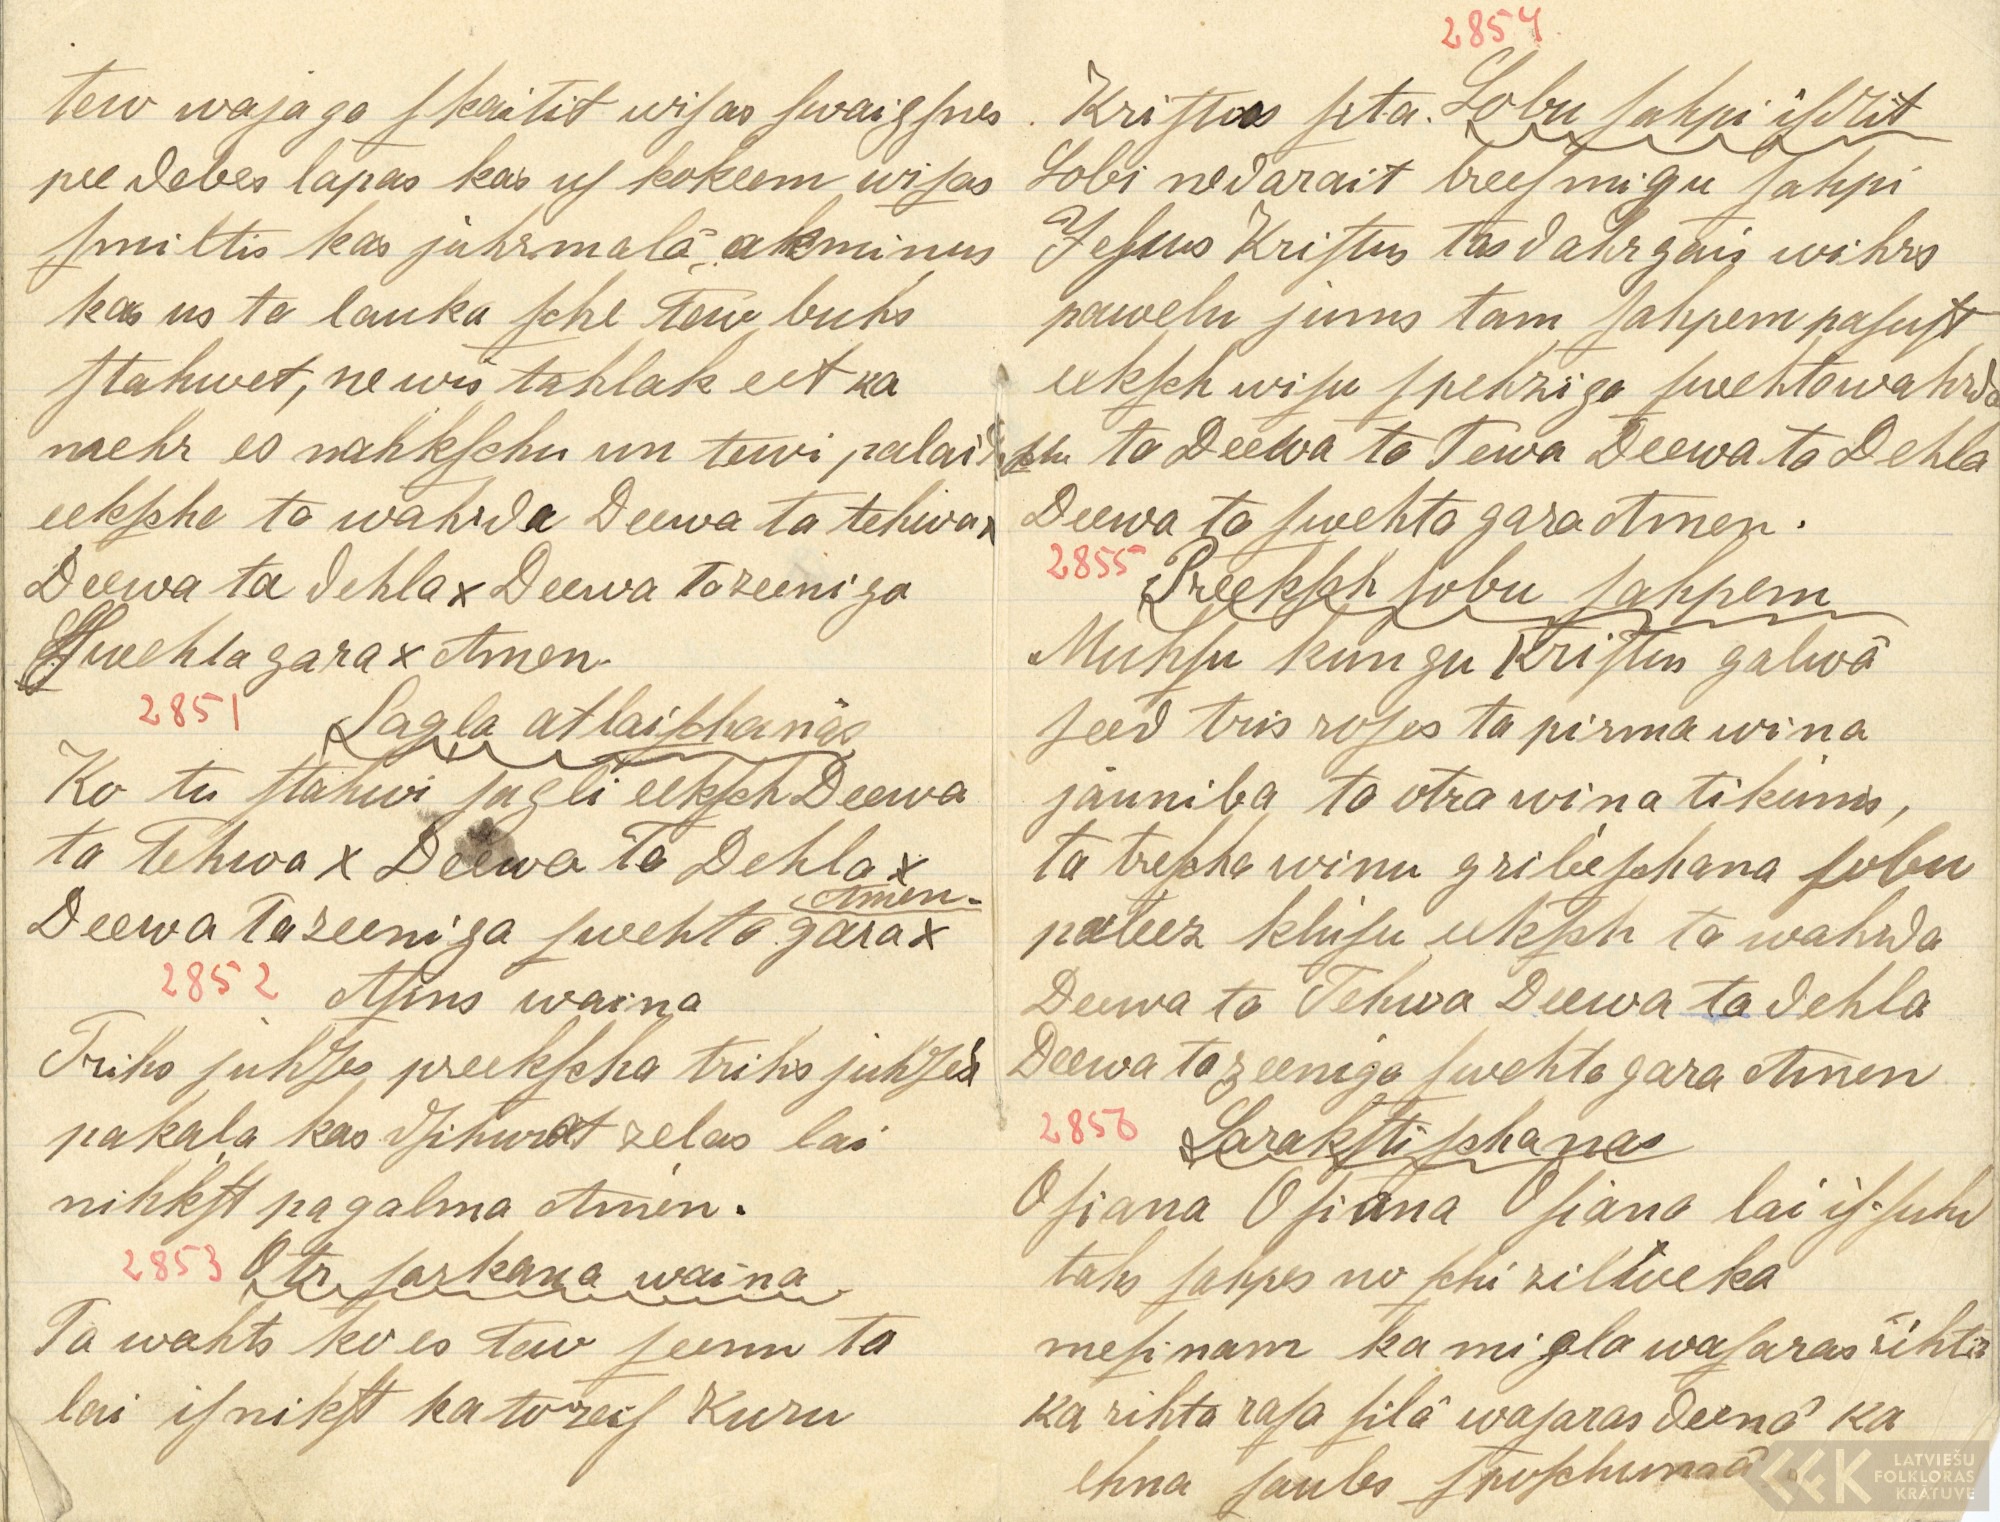 tew wajaga ſkaitit wiſas ſwaigſnes
pee debes lapas kas uſ kokeem wiſas
ſmiltis kas juhrmalâ akminus
kas us ta lauka ſche tew buhs
ſtahwet, ne wis tahlak eet ka
mehr es nahkſchu un tewi palaid
eekſcha ta wahrda Deewa ta tehwa x
Deewa ta dehla x Deewa ta zeeniga
Swehta gara x Amen.
2851
Sagla atlaiſchanas
Ko tu ſtahwi ſagli eekſch Deewa
ta Tehwa x Deewa Ta Dehla x
Amen.
Deewa Ta zeeniga ſwehta gara x
2852
Aſins waina
Trihs juhſes preekſcha trihs juhſes
pakala kas dſihwot zelas lai
nihkſt pagalma Amen.
2853
Otr ſarkana waina
Ta wahts ko es tew ſeenu ta
lai iſnikſt ka toreiſ Kuru
2854.
Kriſtus ſta. Sobu ſahpi iſdſit
Sobi nedarait breeſmigu ſahpi
Jeſus Kriſtus tas dahrgais wihrs
pawelu jums tam ſahpem paſuſt
eekſch wiſu ſpehziga ſwehtawahrda
ſchu ta Deewa ta Tewa Deewa ta Dehla
Deewa ta ſwehta gara Amen.
2855
Preekſch ſobu ſahpem
Muhſu kungu Kriſtus galwâ
ſeed tris roſes ta pirma wina
jauniba ta otra wina tikums,
ta treſcha winu gribeſchana ſobu
pateez kluſu eekſch ta wahrda
Deewa ta Tehwa Deewa ta dehla
Deewa ta zeeniga ſwehta gara Amen
2856
Sarakſtiſchanas
Oſiana Oſiana Oſiana lai iſ-ſuhd
tahs ſahpes no ſchi zilweka
meſinam ka migla waſaras rihta
ka rihta raſa ſilâ waſaras deenâ ka
ehna ſaules ſpoſchumâ
LATVIEŠU
FOLKLORAS
KRĀTUVE